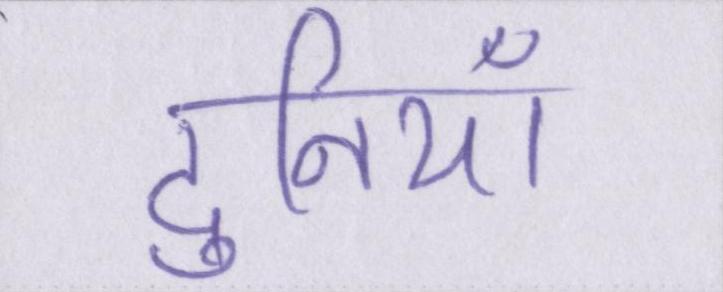 दुनियाँ